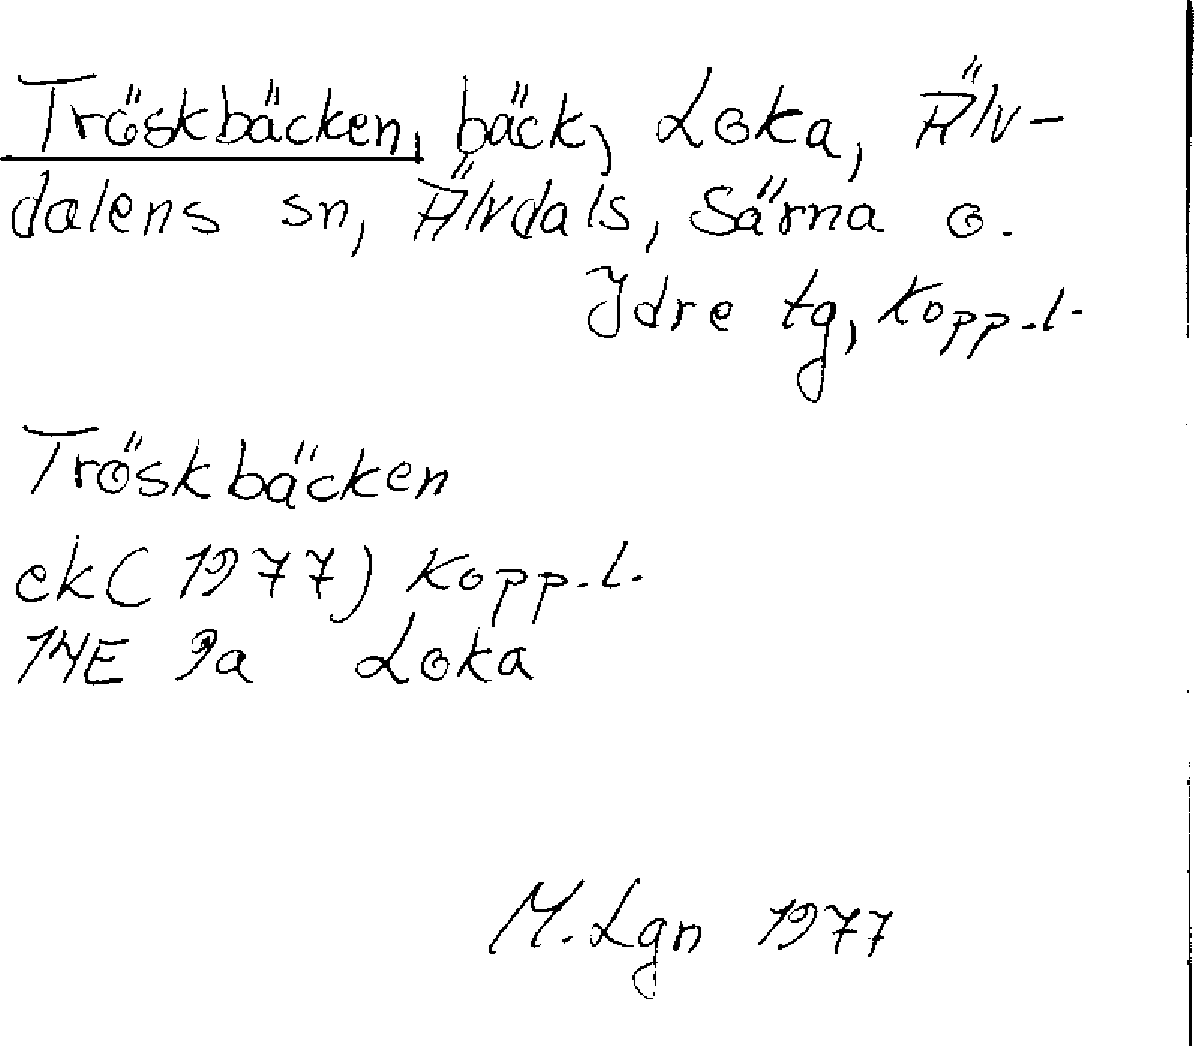 Tröskbäcken, bäck, Loka, Älv-
dalens sn, Älvdals, Särna o.
Idre tg, Kopp.l.
Tröskbäcken
ek (1977) Kopp.l.
14E 9a Loka
M.Lgn 1977